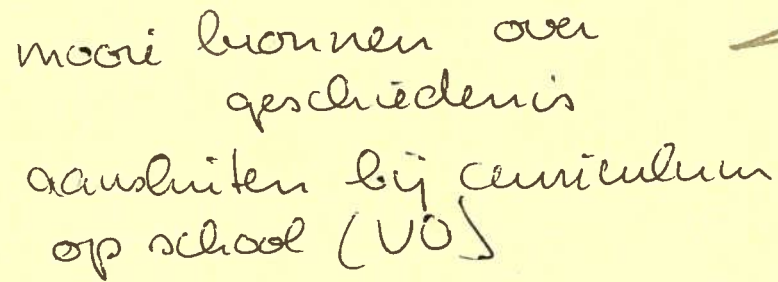 mooie bronnen over
geschiedenis
aansluiten bij curriculum
op school (VO)